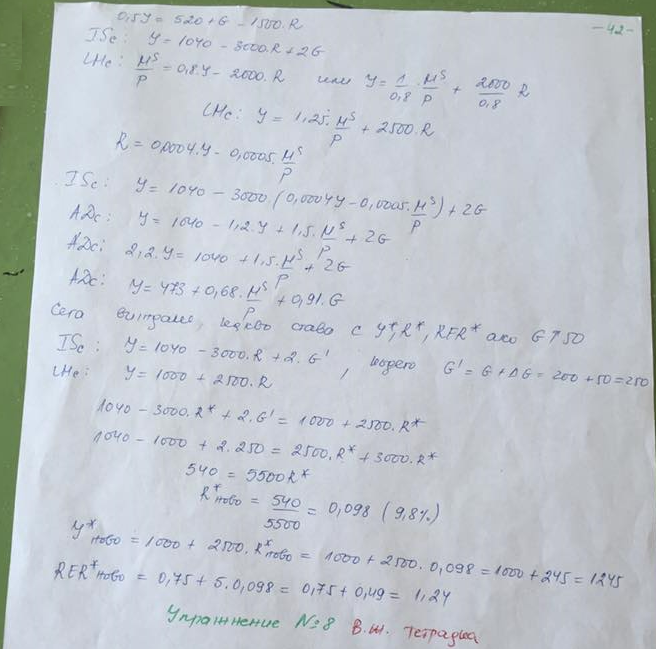 -42-
0,5Y = 520 + G - 1500.R
ISc: Y = 1040 - 3000.R + 2G
LMc: M^S/P = 0,8.Y - 2000.R или Y = 1/0,8 . M^S/P + 2000/0,8 R
LMc: Y = 1,25. M^S/P + 2500.R
R = 0,0004.Y - 0,0005. M^S/P
ISc: Y = 1040 - 3000.(0,0004Y - 0,0005. M^S/P) + 2G
ADc: Y = 1040 - 1,2.Y + 1,5. M^S/P + 2G
ADc: 2,2.Y = 1040 + 1,5. M^S/P + 2G
ADc: Y = 473 + 0,68. M^S/P + 0,91.G
Сега гледаме, какво става с Y*, R*, RER* ако G↑50
ISc: Y = 1040 - 3000.R + 2.G'
LMc: Y = 1000 + 2500.R , където G' = G + ΔG = 200 + 50 = 250
1040 - 3000.R* + 2.G' = 1000 + 2500.R*
1040 - 1000 + 2.250 = 2500.R* + 3000.R*
540 = 5500R*
R*ново = 540/5500 = 0,098 (9,8%)
Y*ново = 1000 + 2500.R*ново = 1000 + 2500.0,098 = 1000 + 245 = 1245
RER*ново = 0,75 + 5.0,098 = 0,75 + 0,49 = 1,24
Упражнение №8 В.ж. тетрадка